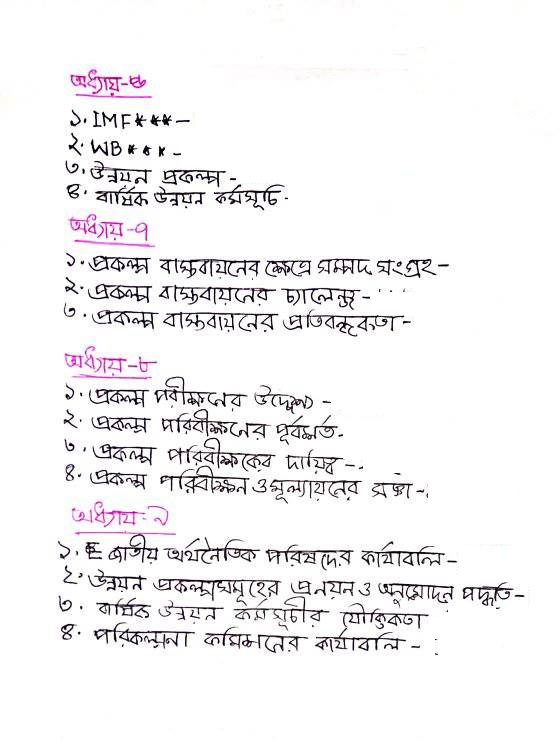 অধ্যায়-৬
১. IMF*** -
২. WB*** -
৩. উন্নয়ন প্রকল্প -
৪. বার্ষিক উন্নয়ন কর্মসূচি.
অধ্যায় -৭
১. প্রকল্প বাস্তবায়নের ক্ষেত্রে সম্পদ সংগ্রহ -
২. প্রকল্প বাস্তবায়নের চ্যালেঞ্জ - ...
৩. প্রকল্প বাস্তবায়নের প্রতিবন্ধকতা -
অধ্যায় -৮
১. প্রকল্প পরীক্ষনের উদ্দেশ্য -
২. প্রকল্প পরিবীক্ষনের পূর্বশর্ত.
৩. প্রকল্প পরিবীক্ষকের দায়িত্ব -.
৪. প্রকল্প পরিবীক্ষন ও মূল্যায়নের -.
অধ্যায় -৯
১. জাতীয় অর্থনৈতিক পরিষদের কার্যাবলি -
২. উন্নয়ন প্রকল্পসমূহের প্রনয়ন ও অনুমোদন পদ্ধতি -
৩. বার্ষিক উন্নয়ন কর্মসূচীর যৌক্তিকতা
৪. পরিকল্পনা কমিশনের কার্যাবলি - :